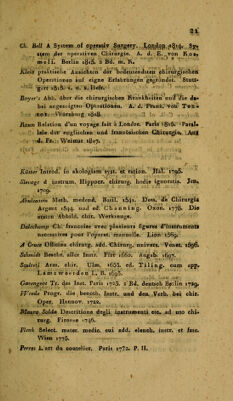 21
Ch. Bell A System of operativ Surgery. London 1814. Sy-
stem der operativen Chirurgie. A. d. E. von Kos-
moli. Berlin 1815. 2 Bd. m. K.
Klein praktische Ansichten der bedeutendsten chirurgischen
Operationen auf eigne Erfahrungen gegründet. Stutt-
gart 1818. 1. u. 2. Heft.
Boyer's Abh. über die chirurgischen Krankheiten und die da-
bei angezeigten Operationen. A. d. Franz. von Tex-
tor. Würzburg 1818.
Roux Relation d'un voyage fait à Londre. Paris 1816. Paral-
lele der englischen und französischen Chirurgie. Aus
d. Fr. Weimar 1817.
Küster Introd. in akologiam syst. et ration. Hal. 1796.
Slevogt d instrum. Hippocr. chirurg. hodie ignoratis. Jen.
1709.
Abulcasem Meth. medend. Basil. 1541. Dess. de Chirurgia
August 1544 und ed Channing. Oxon. 1778. Die
ersten Abbild. chir. Werkzeuge.
Dalechamp Ch. francoise avec plusieurs figures d'instruments
necessaires pour l'operat. manuelle. Lion 1569.
A Cruce Officina chirurg. add. Chirurg. univers. Venet. 1596.
Schmidt Beschr. aller Instr. Fürt 1660. Augsb. 1697.
Sculteti Arm. chir. Ulm. 1653. ed. Tiling. cum app.
Lamzwerden L. B. 1693.
Garengeot Tr. des Inst. Paris 1723. 2 Bd. deutsch Berlin 1729.
Wreds Progr. die benoth. Instr. und den Verb. bei chir.
Oper. Hannov. 1722.
Mauro Soldo Descrittione degli instrumenti etc. ad uso chi-
rurg. Firenze 1746.
Plenk Select. mater. medic. cui add. elench. instr. et fasc.
Wien 1776.
Perret L'art du coutelier. Paris 1772. P. II.